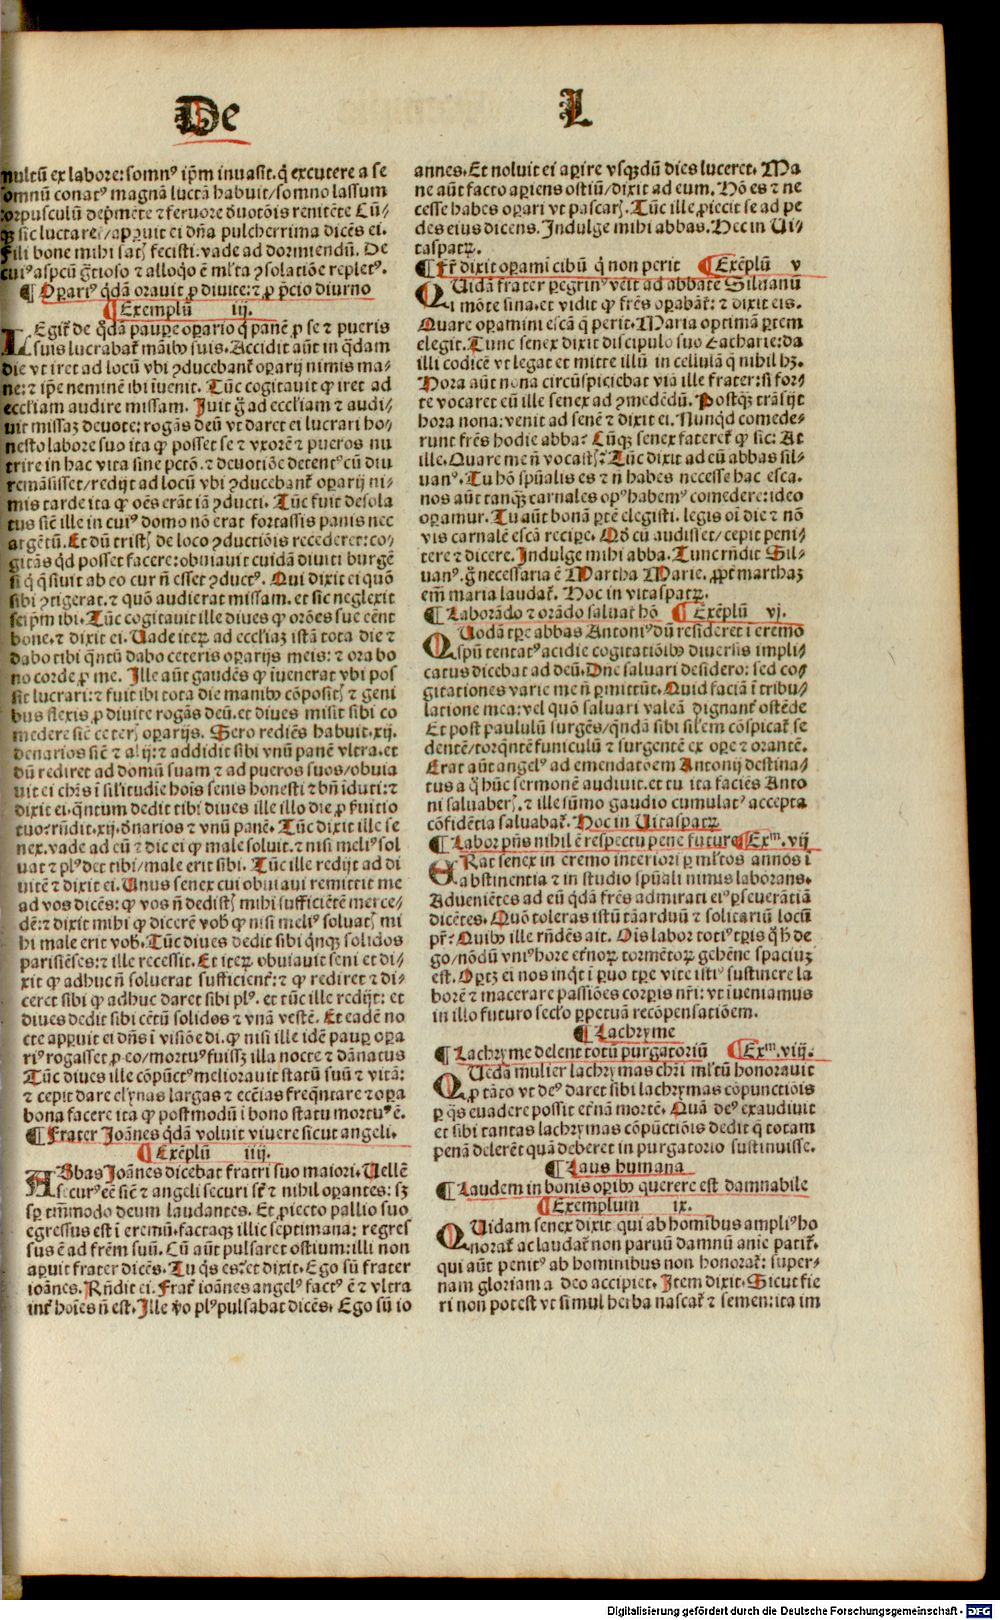 De
L
multū ex labore: somnꝰ ip̄m inuasit. q̄ excutere a se
somnū conatꝰ magnā luctā habuit/somno lassum
corpusculū dep̄mēte ⁊ feruore ꝺuotōis renitēte Cū-
qꝫ sic luctaret̉/apꝑuit ei dn̄a pulcherrima dicēs ei.
Fili bone mihi satꝭ fecisti. vade ad dormiendū. De
cuiꝰ aspcū gr̄tioso ⁊ alloq̇o ē ml̄ta ꝯsolatiōe repletꝰ.
¶ Oꝑariꝰ q̇dā orauit ꝓ diuite: ⁊ ꝓ p̄cio diurno
¶ Exemplū iij.
LEgit̉ de q̇dā pauꝑe oꝑario q̇ panē ꝓ se ⁊ pueris
suis lucrabat̉ māibꝰ suis. Accidit aūt in q̇dam
die vt iret ad locū vbi ꝯducebant̉ oꝑarij nimis ma-
ne: ⁊ ip̄e neminē ibi īuenit. Tūc cogitauit ꝙ iret ad
eccl̄iam audire missam. Iuit g̊ ad eccl̄iam ⁊ audi-
uit missaꝫ deuote: rogās deū vt daret ei lucrari ho-
nesto labore suo ita ꝙ posset se ⁊ vxorē ⁊ pueros nu
trire in hac vita sine pctō. ⁊ deuotiōe detentꝰ cū diu
remāsisset/redijt ad locū vbi ꝯducebant̉ oꝑarij ni-
mis tarde ita ꝙ oēs erāt iā ꝯducti. Tūc fuit desola
tus siĉ ille in cuiꝰ domo nō erat fortassis panis nec
argētū. Et dū tristꝭ de loco ꝯductiōis recederet: co-
gitās qd̄ posset facere: obuiauit cuidā diuiti burgē
si q̇ q̄siuit ab eo cur n̄ esset ꝯductꝰ. Qui dixit ei quō
sibi ꝯtigerat. ⁊ quō audierat missam. et sic neglexit
seip̄m ibi. Tūc cogitauit ille diues ꝙ orōes sue eēnt
bone. ⁊ dixit ei. Uade iteꝝ ad eccl̄iaꝫ istā tota die ⁊
dabo tibi q̄ntū dabo ceteris oꝑarijs meis: ⁊ ora bo
no corde ꝓ me. Ille aūt gaudēs ꝙ īuenerat vbi pos
sit lucrari: ⁊ fuit ibi tota die manibꝰ cōpositꝭ ⁊ geni
bus flexis ꝓ diuite rogās deū. et diues misit sibi co
medere siĉ ceterꝭ oꝑarijs. Sero rediēs habuit. xij.
denarios siĉ ⁊ alij: ⁊ addidit sibi vnū panē vltra. et
dū rediret ad domū suam ⁊ ad pueros suos/obuia
uit ei chr̄s ī sil̄itudiē hoīs senis honesti ⁊ bn̄ īduti: ⁊
dixit ei. q̄ntum dedit tibi diues ille illo die ꝓ ẜuitio
tuo: rn̄dit. xij. ꝺnarios ⁊ vnū panē. Tūc dixit ille se
nex. vade ad eū ⁊ dic ei ꝙ male soluit. ⁊ nisi meliꝰ sol
uat ⁊ plꝰ det tibi/male erit sibi. Tūc ille redijt ad di
uitē ⁊ dixit ei. Unus senex cui obuiaui remittit me
ad vos dicēs: ꝙ vos n̄ dedistꝭ mihi sufficiētē merce-
dē: ⁊ dixit mihi ꝙ dicerē vob̄ ꝙ nisi meliꝰ soluatꝭ mi
hi male erit vob̄. Tūc diues dedit sibi q̇nqꝫ solidos
parisiēses: ⁊ ille recessit. Et iteꝝ obuiauit seni et di-
xit ꝙ adhuc n̄ soluerat sufficient̉: ⁊ ꝙ rediret ⁊ di-
ceret sibi ꝙ adhuc daret sibi plꝰ. et tūc ille redijt: et
diues dedit sibi cētū solidos ⁊ vnā vestē. Et eadē no
cte apꝑuit ei dn̄s ī visiōe dī. ꝙ nisi ille idē pauꝑ oꝑa
riꝰ rogasset ꝓ eo/mortuꝰ fuissꝫ illa nocte ⁊ dānatus
Tūc diues ille cōpūctꝰ meliorauit statū suū ⁊ vitā:
⁊ cepit dare elynas largas ⁊ ecc̄ias freq̄ntare ⁊ oꝑa
bona facere ita ꝙ postmodū ī bono statu mortuꝰ ē.
¶ Frater Ioānes q̇dā voluit viuere sicut angeli.
¶ Exēplū iiij.
ABbas Ioānes dicebat fratri suo maiori. Uellē
securꝰ eē siĉ ⁊ angeli securi st̄ ⁊ nihil oꝑantes: sꝫ
sꝑ tm̄modo deum laudantes. Et ꝓiecto pallio suo
egressus est ī eremū. factaqꝫ illic septimana: regres
sus ē ad frēm suū. Cū aūt pulsaret ostium: illi non
aꝑuit frater dicēs. Tu q̇s es: et dixit. Ego sū frater
ioānes. Rn̄dit ei. Frat̉ ioānes angelꝰ factꝰ ē ⁊ vltra
int̉ hoīes n̄ est. Ille v̊o plꝰ pulsabat dicēs. Ego sū io
annes. Et noluit ei aꝑire vsqꝫdū dies luceret. Ma
ne aūt facto aꝑiens ostiū/dixit ad eum. Hō es ⁊ ne
cesse habes oꝑari vt pascarꝭ. Tūc ille ꝓiecit se ad pe
des eius dicens. Indulge mihi abbas. Hec in Ui-
taspatꝝ.
¶ Fr̄ dixit oꝑamī cibū q̇ non perit ¶ Exēplū v
QUidā frater ꝑegrinꝰ vēit ad abbatē Siluanū
i mōte sina. et vidit ꝙ frēs oꝑabāt̉: ⁊ dixit eis.
Quare oꝑamini escā q̄ perit. Maria optimā ꝑtem
elegit. Tunc senex dixit discipulo suo Zacharie: da
illi codicē vt legat et mitte illū in cellulā q̄ nihil hꝫ.
Hora aūt nona circūspiciebat viā ille frater: si for-
te vocaret eū ille senex ad ꝯmedēdū. Postqꝫ trāsijt
hora nona: venit ad senē ⁊ dixit ei. Nunqd̄ comede-
runt frēs hodie abba? Cūqꝫ senex fateret̉ ꝙ sic: At
ille. Quare me n̄ vocastꝭ? Tūc dixit ad eū abbas sil-
uanꝰ. Tu hō spūalis es ⁊ n̄ habes necesse hac esca.
nos aūt tanqꝫ carnales opꝰ habemꝰ comedere: ideo
oꝑamur. Tu aūt bonā ꝑtē elegisti. legis oī die ⁊ nō
vis carnalē escā recipe. Qd̄ cū audisset/cepit peni-
tere ⁊ dicere. Indulge mihi abba. Tunc rn̄dit Sil-
uanꝰ. g̊ necessaria ē Martha Marie. ꝓpt̉ marthaꝫ
em̄ maria laudat̉. Hoc in vitaspatꝝ.
¶ Laborādo ⁊ orādo saluat̉ hō ¶ Exēplū vj.
QUodā tꝑe abbas Antoniꝰ dū resideret ī eremo
spū tentatꝰ acidie cogitatiōibꝰ diuersis impli-
catus dicebat ad deū. Dne saluari desidero: sed co-
gitationes varie me n̄ ꝑmittūt. Quid faciā ī tribu-
latione mea: vel quō saluari valeā dignant̉ ostēde
Et post paululū surgēs/q̄ndā sibi sil̄em cōspicat̉ se
dentē/torq̄ntē funiculū ⁊ surgentē ex oꝑe ⁊ orantē.
Erat aūt angelꝰ ad emendatoem Antonij destina-
tus a q̇ hūc sermonē audiuit. et tu ita faciēs Anto
ni saluaberꝭ. ⁊ ille sūmo gaudio cumulatꝰ accepta
cōfidētia saluabat̉. Hoc in Uitaspatꝝ
¶ Labor pn̄s nihil ē respectu pene future ¶ Exm. vij
ERat senex in eremo interiori ꝑ ml̄tos annos ī
abstinentia ⁊ in studio spūali nimis laborans.
Adueniētes ad eū q̇dā frēs admirati eiꝰ ꝑseuerātiā
dicētes. Quō toleras istū tā arduū ⁊ solitariū locū
pr̄? Quibꝰ ille rn̄dēs ait. Oīs labor totiꝰ tꝑis q̄ hꝭ de
go/nōdū vniꝰ hore et̉noꝝ tormētoꝝ gehēne spaciuꝫ
est. Oꝑtꝫ ei nos inq̇t ī ꝑuo tꝑe vite istiꝰ sustinere la
borē ⁊ macerare passiōes corꝑis nr̄i: vt īueniamus
in illo futuro secl̄o ꝑpetuā recōpensatiōem.
¶ Lachryme
¶ Lachryme delent totū purgatoriū ¶ Exm. viij.
QUedā mulier lachrymas chr̄i ml̄tū honorauit
ꝓ tāto vt deꝰ daret sibi lachrymas cōpunctiōis
ꝑ q̄s euadere possit et̉nā mortē. Quā deꝰ exaudiuit
et sibi tantas lachrymas cōpūctiōis dedit q̄ totam
penā delerēt quā deberet in purgatorio sustinuisse.
¶ Laus humana
¶ Laudem in bonis oꝑibꝰ querere est damnabile
¶ Exemplum ix.
QUidam senex dixit qui ab homībus ampliꝰ ho
norat̉ ac laudat̉ non paruū damnū anīe patit̉.
qui aūt penitꝰ ab hominibus non honorat̉: super-
nam gloriam a deo accipiet. Item dixit. Sicut fie
ri non potest vt simul herba nascat̉ ⁊ semen: ita im
Digitalisierung gefördert durch die Deutsche Forschungsgemeinschaft - DFG